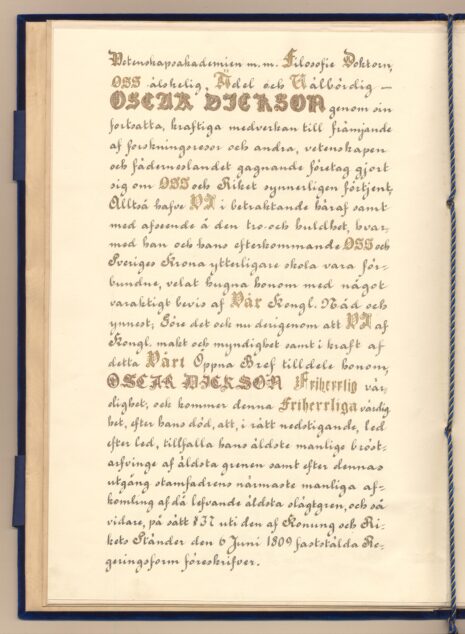 Vetenskapsakademien m. m. Filosofie Doktorn,
OSS älskelig, Ädel och Välbördig —
OSCAR DICKSON genom sin
fortsatta, kraftiga medverkan till främjande
af forskningsresor och andra, vetenskapen
och fäderneslandet gagnande företag gjort
sig om OSS och Riket synnerligen förtjent,
Alltså hafve VI i betraktande häraf samt
med afseende å den tro- och huldhet, hvar-
med han och hans efterkommande OSS och
Sveriges Krona ytterligare skola vara för-
bundne, velat hugna honom med något
varaktigt bevis af Vår Kongl. Nåd och
ynnest; Göre det ock nu derigenom att VI af
Kongl. makt och myndighet samt i kraft af
detta Vårt Öppna Bref tilldele honom,
OSCAR DICKSON Friherrlig vär-
dighet, och kommer denna Friherrliga värdig-
het, efter hans död, att, i rätt nedstigande, led
efter led, tillfalla hans äldste manlige bröst-
arfvinge af äldsta grenen samt efter dennas
utgång stamfadrens närmaste manliga af-
komling af då lefvande äldsta slägtgren, och så
vidare, på sätt § 37 uti den af Konung och Ri-
kets Ständer den 6 Juni 1809 faststälda Re-
geringsform föreskrifver.